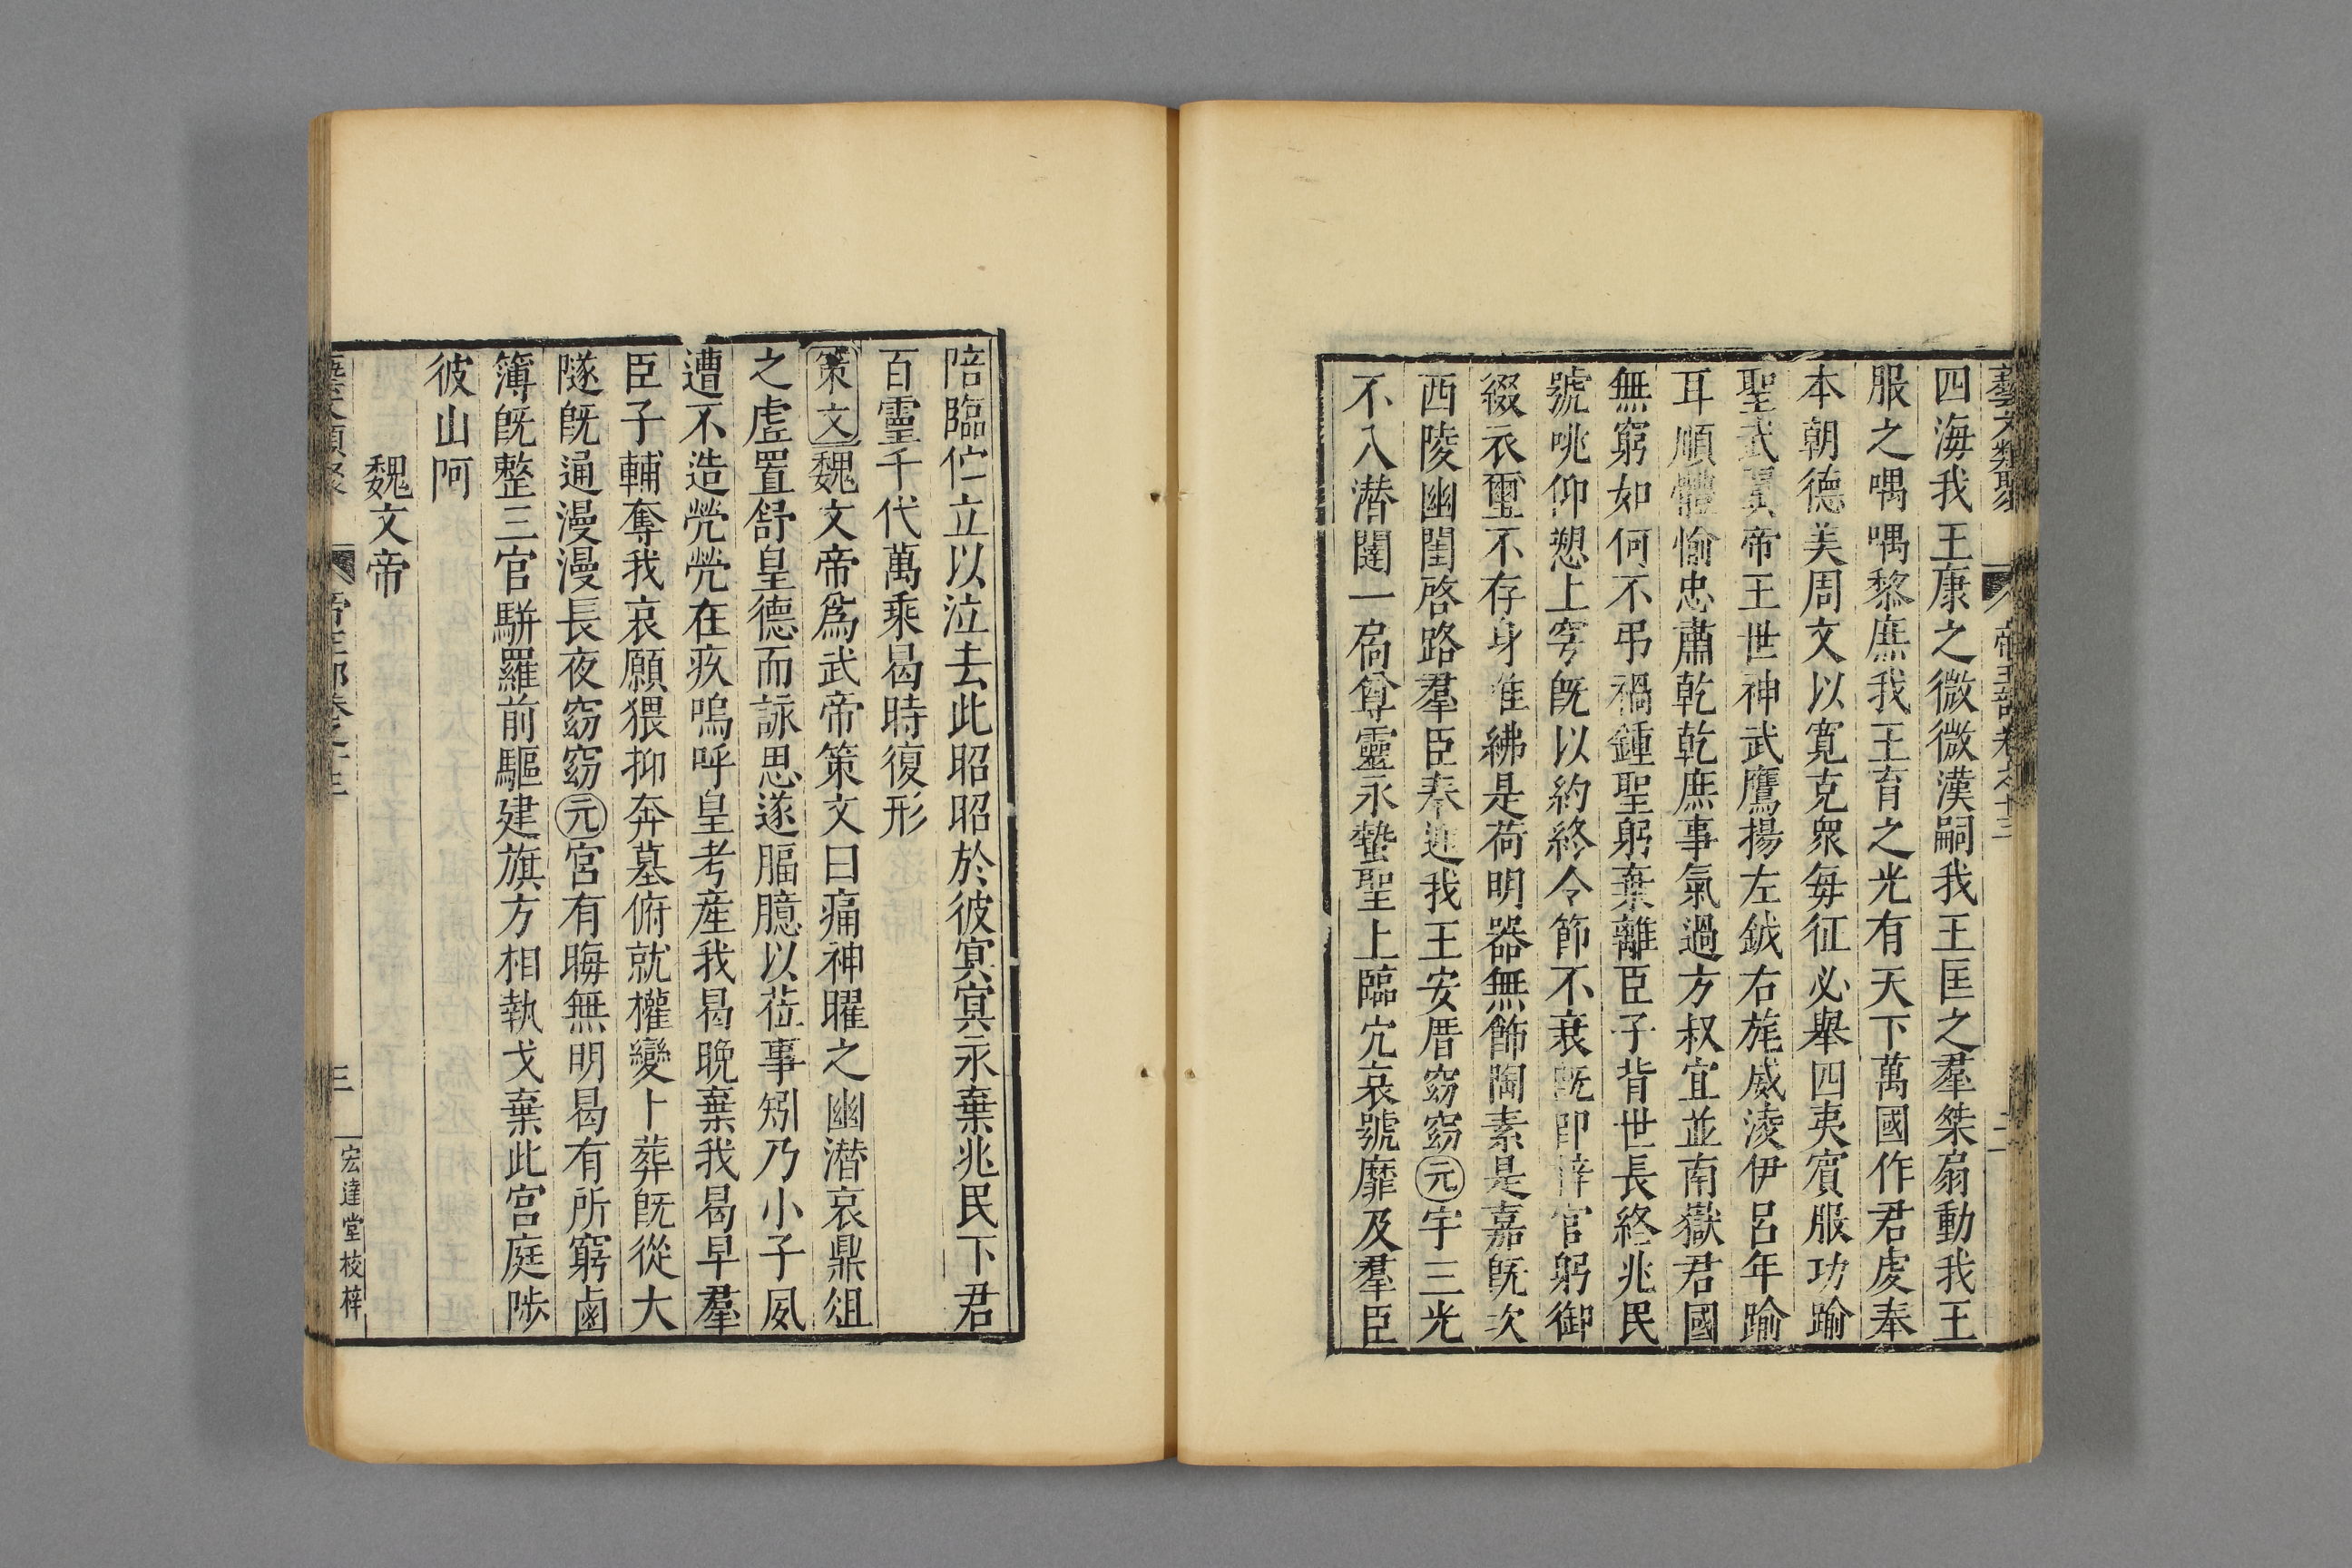 藝文類聚 帝王部卷之十三 二
四海我王康之微微漢嗣我王匡之羣桀扇動我王
服之喁喁黎庶我王育之光有天下萬國作君虔奉
本朝德美周文以寬克衆每征必舉四夷賓服功踰
聖武翼帝王世神武鷹揚左鉞右旄威淩伊呂年踰
耳順體愉忠肅乾乾庶事氣過方叔宜並南嶽君國
無窮如何不弔禍鍾聖躬棄離臣子背世長終兆民
號咷仰愬上穹旣以約終令節不衰旣卽梓宮躬御
綴衣璽不存身唯紼是荷明器無飾陶素是嘉旣次
西陵幽閨啓路羣臣奉迎我王安厝窈窈元宇三光
不入潜闥一扃尊靈永蟄聖上臨穴哀號靡及羣臣
陪臨伫立以泣去此昭昭於彼冥冥永棄兆民下君
百靈千代萬乘曷時復形
策文魏文帝爲武帝策文曰痛神曜之幽潜哀鼎俎
之虛置舒皇德而詠思遂腷臆以莅事矧乃小子夙
遭不造煢煢在疚嗚呼皇考産我曷晩棄我曷早羣
臣子輔奪我哀願猥抑奔墓俯就權變卜葬旣從大
隧旣通漫漫長夜窈窈元宮有晦無明曷有所窮鹵
簿旣整三官駢羅前驅建旗方相執戈棄此宮庭陟
彼山阿
魏文帝
藝文類聚 帝王部卷之十三 三 宏達堂校梓